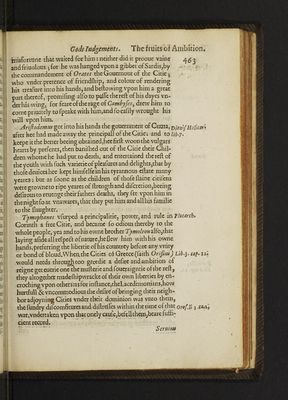 Gods Iudgements. The fruits of Ambition.
463
misfortune that waited for him: neither did it prooue vaine
and friuolous; for he was hanged vpon a gibbet of Sardis, by
the commandement of Orates the Gouernour of the Citie;
who vnder pretence of friendship, and colour of rendering
his treasure into his hands, and bestowing vpon him a great
part thereof, promising also to passe the rest of his dayes vn-
der his wing, for feare of the rage of Cambyses, drew him to
come priuately to speake with him, and so easily wrought his
will vpon him.
Aristodemus got into his hands the gouernment of Cuma,
after hee had made away the principall of the Citie: and to
keepe it the better beeing obtained, hee first woon the vulgars
hearts by presents, then banished out of the Citie their Chil-
dren whome he had put to death, and entertained the rest of
the youth with such varietie of pleasures and delights, that by
those deuices hee kept himselfe in his tyrannous estate many
yeares: but as soone as the children of those slaine citizens
were growne to ripe yeares of strength and discretion, beeing
desirous to reuenge their fathers deaths, they set vpon him in
the night so at vnawares, that they put him and all his familie
to the slaughter.
Tymophanes vsurped a principalitie, power, and rule in
Corinth a free Citie, and became so odious thereby to the
whole people, yea and to his owne brother Tymoleon also, that
laying aside all respect of nature, he slew him with his owne
hands, preferring the libertie of his countrey before any vnity
or bond of bloud. When the Cities of Greece (saith Orosius)
would needs through too greedie a desire and ambition of
reigne get euerie one the maisterie and soueraigntie of the rest,
they altogether made shipwracke of their own liberties by en-
croching vpon others: as for instance, the Lacedemonians, how
hurtfull & vncommodious the desire of bringing their neigh-
bor adioyning Cities vnder their dominion was vnto them,
the sundry discomfitures and distresses within the time of that
war, vndertaken vpon that onely cause, befell them, beare suffi-
cient record.
Plutarch.
Seruius